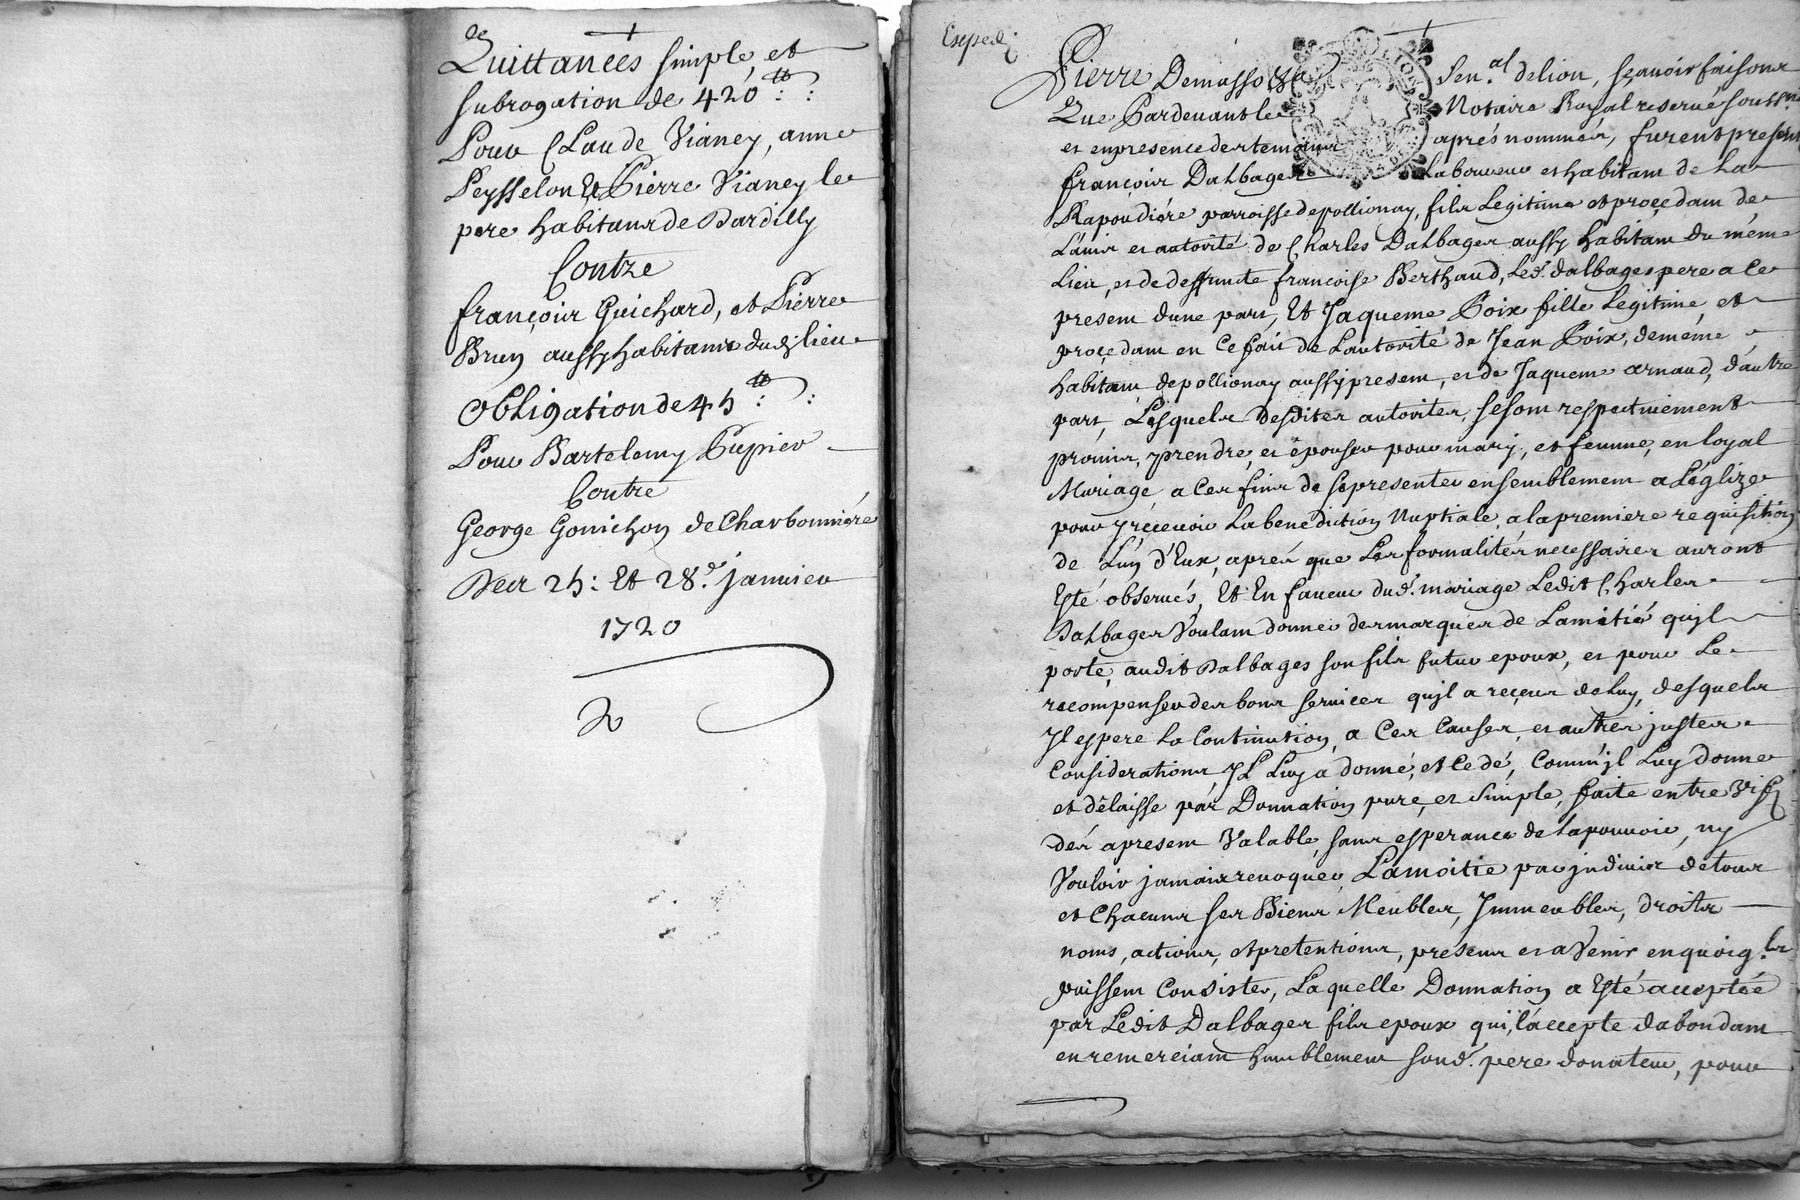 Quittances simple, et
subrogation de 420 ₶ :
Pour Claude Vianey, anne
Peysselon Et Pierre Vianey le
pere habitans de Dardilly
Contre
françois Guichard, et Pierre
Brun aussy habitans dud. lieu
Obligation de 45 ₶ :
Pour Bartelemy Pupier
Contre
George Gonichon de Charbonnière
Des 25: Et 28.e janvier
1720
Exped.
Pierre Demasso Sen.al de lion, sçavoir faisons
Que Pardevant le Notaire Royal reservé souss.né
et en presence des temoins aprés nommés, furent presens
françois Dalbages Laboureur et habitant de La
Rapoudiére parroisse de pollionay, fils Legitime et procedant de
L'avis et autorité de Charles Dalbages aussy habitant du méme
Lieu, et de deffunte francoise Berthaud, Led. dalbages pere a Ce
present dune part, Et Jaqueme Poix fille Legitime, et
procedant en Ce fait de Lautorité de Jean Poix, deméme
habitant de pollionay aussy present, et de Jaqueme arnaud, d'autre
part, Lesquels desdites autorités, se sont respectivement
promis, prendre, et épouser pour mary, et femme, en loyal
Mariage, a Ces fins de se presenter ensemblement a L'églize
pour y recevoir La benediction Nuptiale, a la premiere requisition
de L'un d'Eux, aprés que Les formalités necessaires auront
Esté observés, Et En faveur dud. mariage Ledit Charles
Dalbages Voulant donner des marques de Lamitié quil
porte, audit Dalbages son fils futur epoux, et pour Le
recompenser des bons services quil a reçeus de luy, desquels
Il espere La Continution, a Ces Causes, et autres justes
Considerations, Il Luy a donné, et Cedé, Comm'il Luy donne
et délaisse par Donnation pure, et simple, faite entre Vifs
dés apresent Valable, sans esperance de la pouvoir, ny
Vouloir jamais revoquer, Lamoitié par jndivis de tous
et Chacuns ses Biens Meubles, Immeubles, droits
noms, actions, et pretentions, presens et a Venir en quoiq.ls
puissent Consister, Laquelle Donnation a Esté acceptée
par Ledit Dalbages fils epoux qui, l'accepte dabondant
en remerciant humblement sond. pere donateur, pour